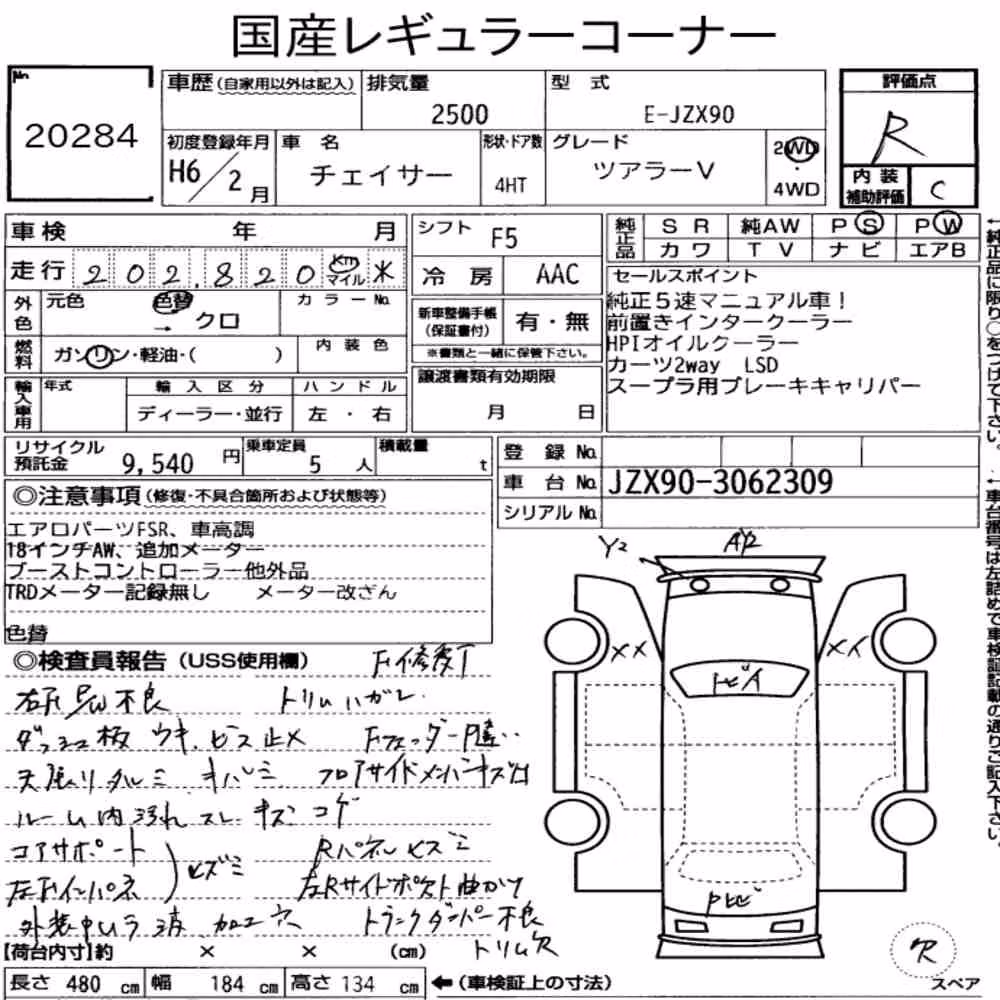 国産レギュラーコーナー
No.
20284
車歴(自家用以外は記入)
排気量
2500
型 式
E-JZX90
初度登録年月
H6/2月
車 名
チェイサー
形状・ドア数
4HT
グレード
ツアラーV
2WD
・
4WD
評価点
R
内装
補助評価
C
車検 年 月
走行 202,820 km マイル ※
外色
元色
色替
→ クロ
カラーNo.
燃料
ガソリン・軽油・( )
内装色
輸入車用
年式
輸入区分
ディーラー・並行
ハンドル
左・右
シフト
F5
冷房
AAC
新車整備手帳
(保証書付)
有・無
※書類と一緒に保管下さい。
譲渡書類有効期限
月 日
純正品
SR
純AW
PS
PW
カワ
TV
ナビ
エアB
セールスポイント
純正5速マニュアル車!
前置きインタークーラー
HPIオイルクーラー
カーツ2way LSD
スープラ用ブレーキキャリパー
←純正品に限り○をつけて下さい。
←車台番号は左詰めで車検証記載の通りご記入下さい。
リサイクル
預託金
9,540 円
乗車定員
5 人
積載量
t
登録No.
車台No.
JZX90-3062309
シリアルNo.
◎注意事項(修復・不具合箇所および状態等)
エアロパーツFSR、車高調
18インチAW、追加メーター
ブーストコントローラー他外品
TRDメーター記録無し メーター改ざん
色替
◎検査員報告(USS使用欄)
F修復了
トリムハガレ
ダッシュ板 ウキ、ビス止メ
Fフェンダー
天張りタルミ キバミ
フロアサイドメンバーキズ凹
ルーム内 汚れ スレ キズ コゲ
コアサポート
左Fインパネ
ヒズミ
Rパネルヒズミ
左Rサイドポスト曲がり
外装 ムラ 波 加工穴
トランクダンパー不良
トリム欠
Y2
A12
××
トビイ
欠
スペア
【荷台内寸】約 × × (cm)
長さ 480 cm 幅 184 cm 高さ 134 cm ←(車検証上の寸法)